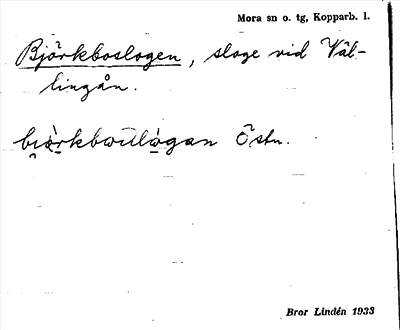 Mora sn o. tg, Kopparb. l.
Björkboslogen, sloge vid Väl-
lingån.
Östn.
Bror Lindén 1933